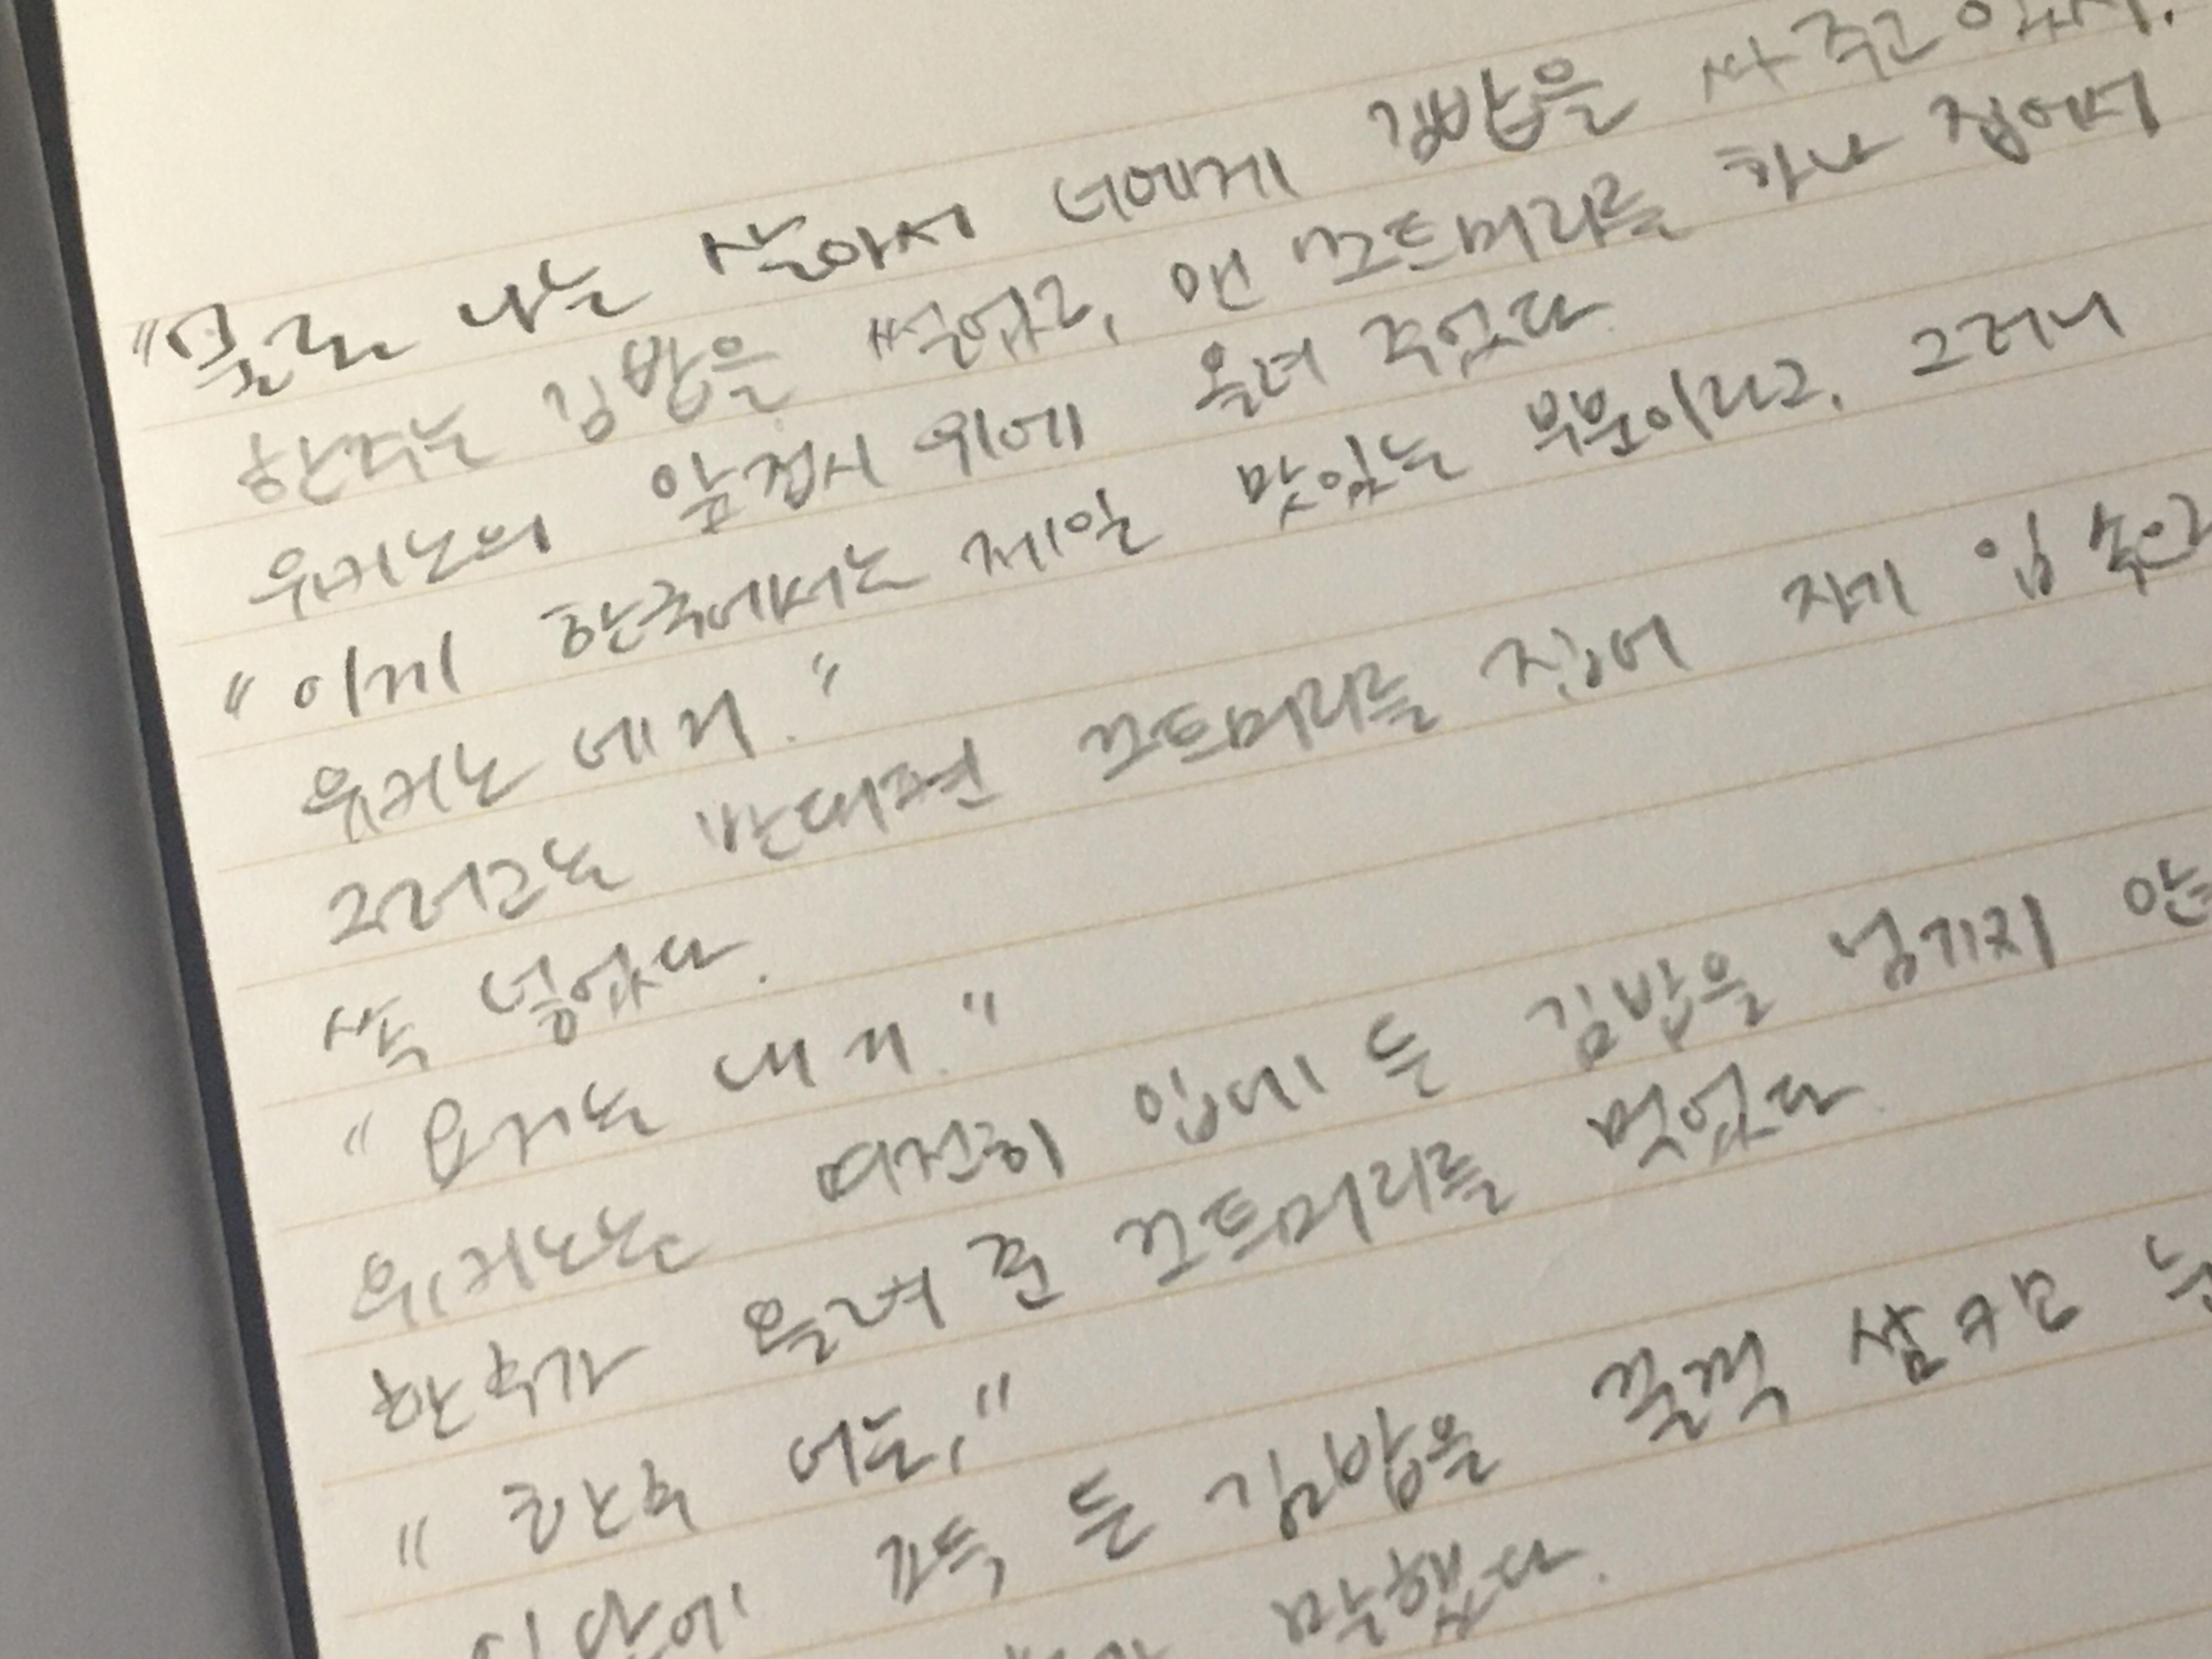 "물론 나는 살아서 너에게 김밥을 싸 주고 있지.
한수는 김밥을 썰었고, 맨 꼬트머리를 하나 집어서
유키노의 앞접시 위에 올려 주었다.
"이게 한국에서는 제일 맛있는 부분이라고. 그러니
유키노 네 거."
그러고는 반대편 꼬트머리를 집어 자기 입 속으로
쏙 넣었다.
"요거는 내 거."
유키노는 여전히 입에 든 김밥을 넘기지 않
한수가 올려 준 꼬트머리를 먹었다.
"한수 너는,"
입안에 가득 든 김밥을 꿀꺽 삼키고
말했다.